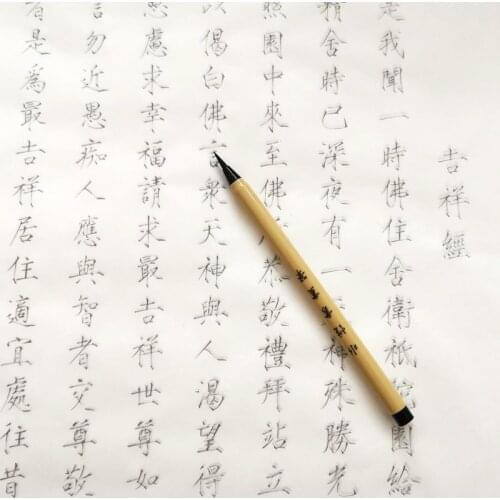 吉祥經
是我聞一時佛住舍衛祇園給
精舍時已深夜有一神殊勝光
照園中來至佛恭敬禮拜站立
以偈白佛言眾天神與人渴望得
思慮求幸福請求最吉祥世尊如
言勿近愚癡人應與智者交尊敬
者是為最吉祥居住適宜處往昔